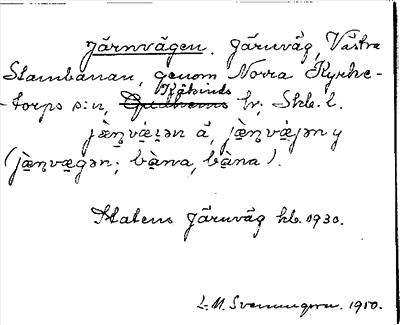 Järnvägen. Järnväg, Västra
Stambanan, genom Norra Kyrke-
torps s:n, Kåkinds hr, Skb. l.
jæ̀n̥vǽɩən å, jæ̀n̥væ̀jən y
(jæ̀n̥vægən; bàna, bàna).
Statens Järnväg kb. 1930.
L.M. Svenungsson. 1950.